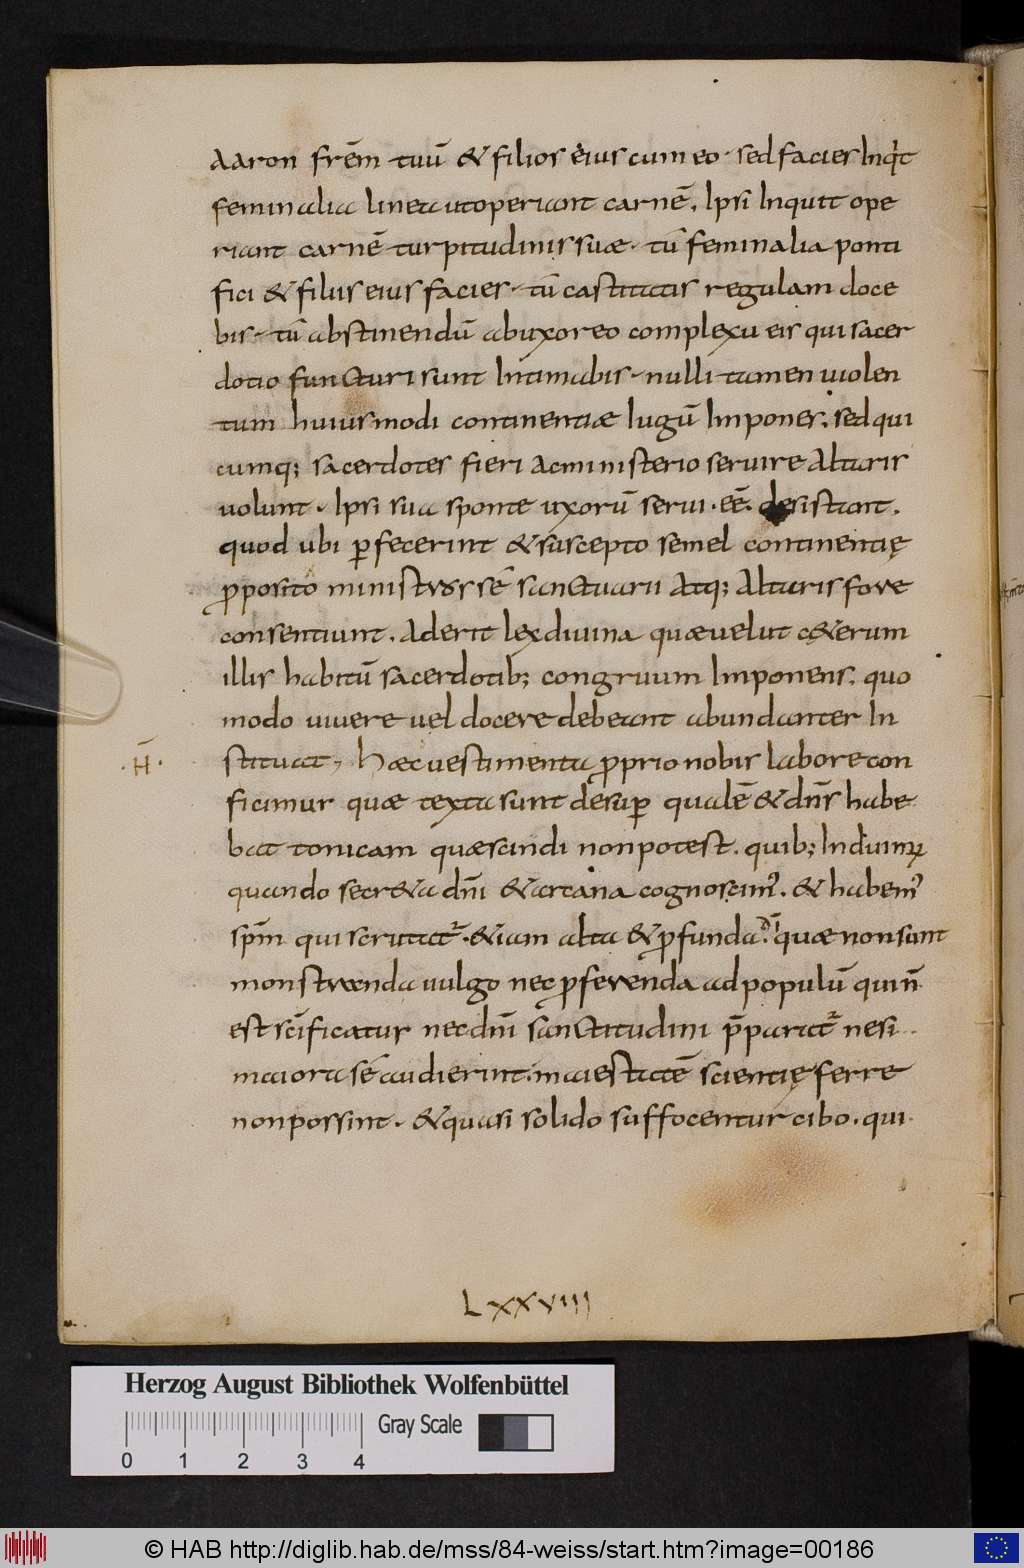 Aaron frēm tuū & filios eius cum eo. sed facies Inqͥt
feminalia linea ut operiant carnē. Ipsi Inquit ope
riant carnē turpitudinis suae. tū feminalia ponti
fici & filiis eius facies. tū castitatis regulam doce
bis. tū abstinendū ab uxoreo complexu eis qui sacer
dotio functuri sunt Intimabis. nulli tamen uiolen
tum huiusmodi continentiae Iugū Impones. sed qui
cumq; sacerdotes fieri ac ministerio seruire altaris
uolunt. Ipsi sua sponte uxorū serui. eē. desistant.
quod ubi ꝑfecerint & suscepto semel continentię
ꝓposito ministros sē sanctuarii atq; altaris fore
consentiunt. Aderit lex diuina quae uelut c&erum
illis habitū sacerdotib; congruum Imponens. quo
modo uiuere uel docere debeant abundanter In
stituat. Haec uestimenta ꝓprio nobis labore con
·H̄·
ficimur quae texta sunt desuꝑ qualē & dn̄s habe
bat tonicam quae scindi non potest. quib; Induimur
quando secr&a dn̄i & arcana cognoscim᾽. & habem᾽
spm̄ qui scrutat᾽. &iam alta & ꝓfunda dī. quae non sunt
monstranda uulgo nec ꝓferenda ad populū qui n̄
est scīficatur nec dn̄i sanctitudini p̄parat᾽ ne si
maiora sē audierint. maiestatē scientię ferre
non possint. & quasi solido suffocentur cibo. qui
LXXVIII
Herzog August Bibliothek Wolfenbüttel
Gray Scale
0 1 2 3 4
© HAB http://diglib.hab.de/mss/84-weiss/start.htm?image=00186